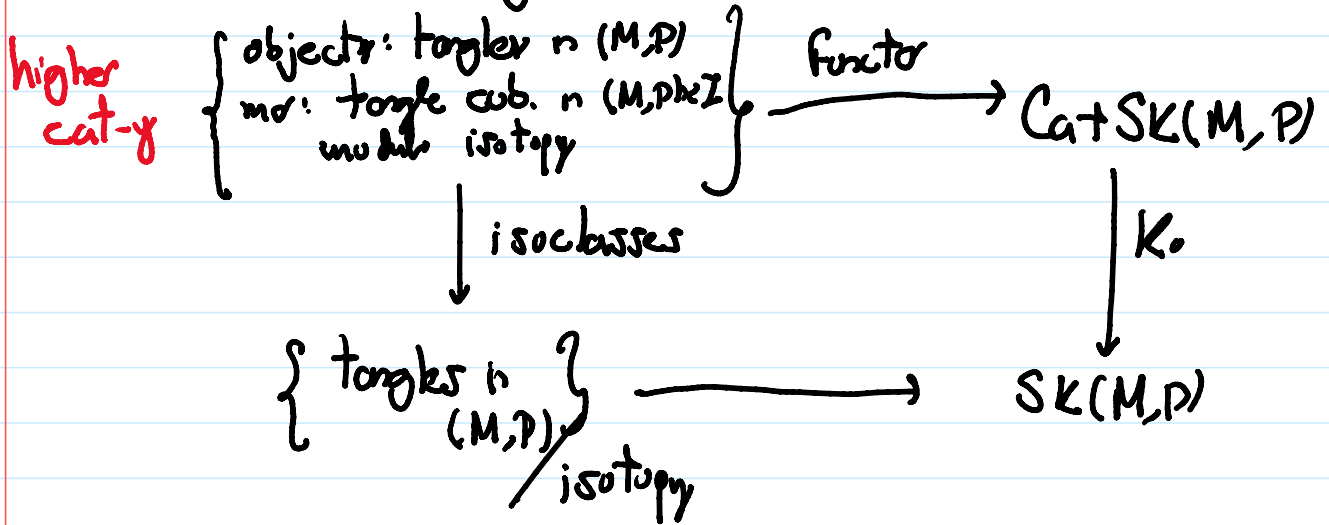 higher
cat-y
{ objects: tangles in (M,P)
mor: tangle cob. in (M,P)×I
modulo isotopy }
functor
CatSK(M,P)
isoclasses
K₀
{ tangles in
(M,P) } / isotopy
SK(M,P)